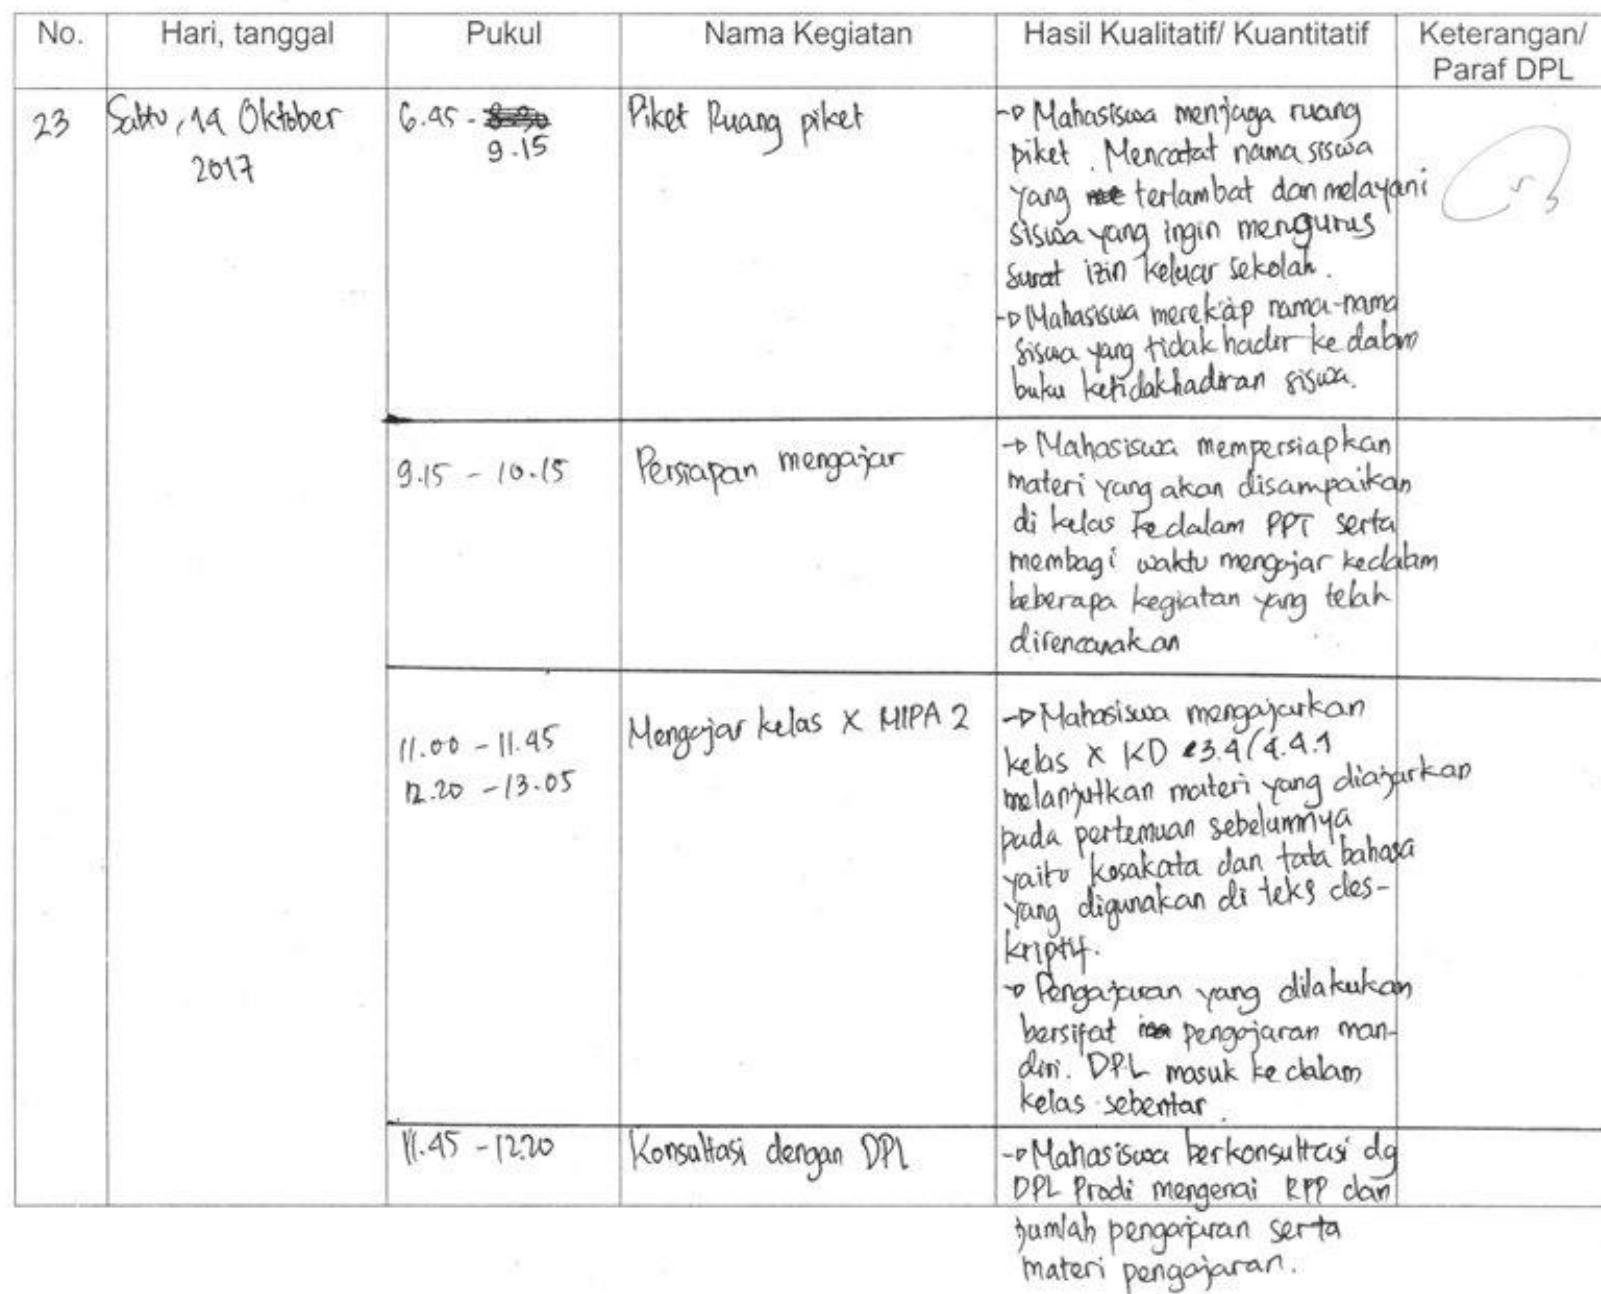 No.
Hari, tanggal
Pukul
Nama Kegiatan
Hasil Kualitatif/ Kuantitatif
Keterangan/
Paraf DPL
23
Sabtu, 14 Oktober
2017
6.45 - 8.30
9.15
Piket Ruang piket
→ Mahasiswa menjaga ruang
piket. Mencatat nama siswa
yang terlambat dan melayani
siswa yang ingin mengurus
surat izin keluar sekolah.
→ Mahasiswa merekap nama-nama
siswa yang tidak hadir ke dalam
buku ketidakhadiran siswa.
9.15 - 10.15
Persiapan mengajar
→ Mahasiswa mempersiapkan
materi yang akan disampaikan
di kelas kedalam PPT serta
membagi waktu mengajar kedalam
beberapa kegiatan yang telah
direncanakan
11.00 - 11.45
12.20 - 13.05
Mengajar kelas X MIPA 2
→ Mahasiswa mengajarkan
kelas X KD 3.4/4.4.1
melanjutkan materi yang diajarkan
pada pertemuan sebelumnya
yaitu kosakata dan tata bahasa
yang digunakan di teks des-
kriptif.
→ Pengajaran yang dilakukan
bersifat pengajaran man-
diri. DPL masuk ke dalam
kelas sebentar.
11.45 - 12.20
Konsultasi dengan DPL
→ Mahasiswa berkonsultasi dg
DPL Prodi mengenai RPP dan
jumlah pengajaran serta
materi pengajaran.